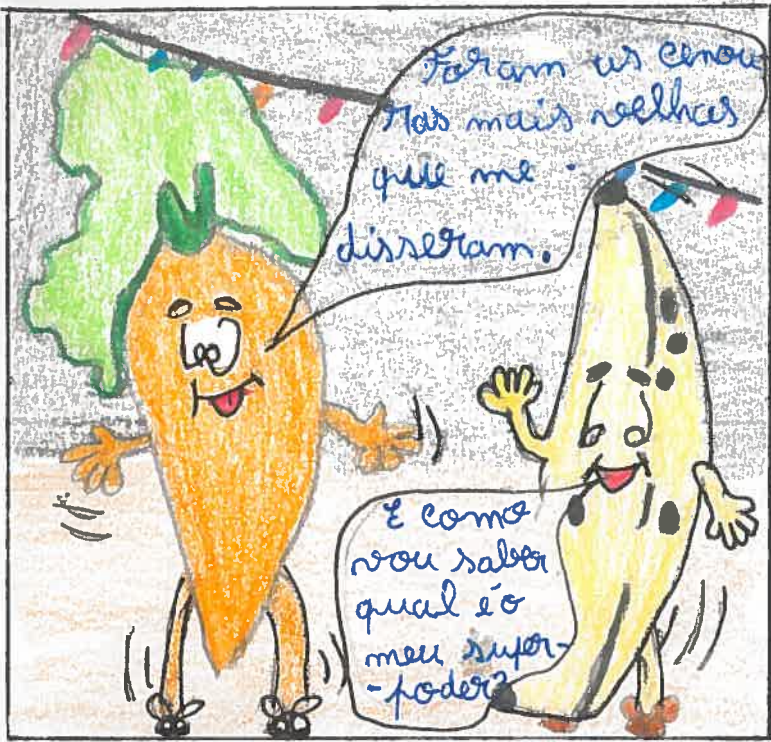 Foram as cenou
ras mais velhas
que me
disseram.
E como
vou saber
qual é o
meu super-
-poder?